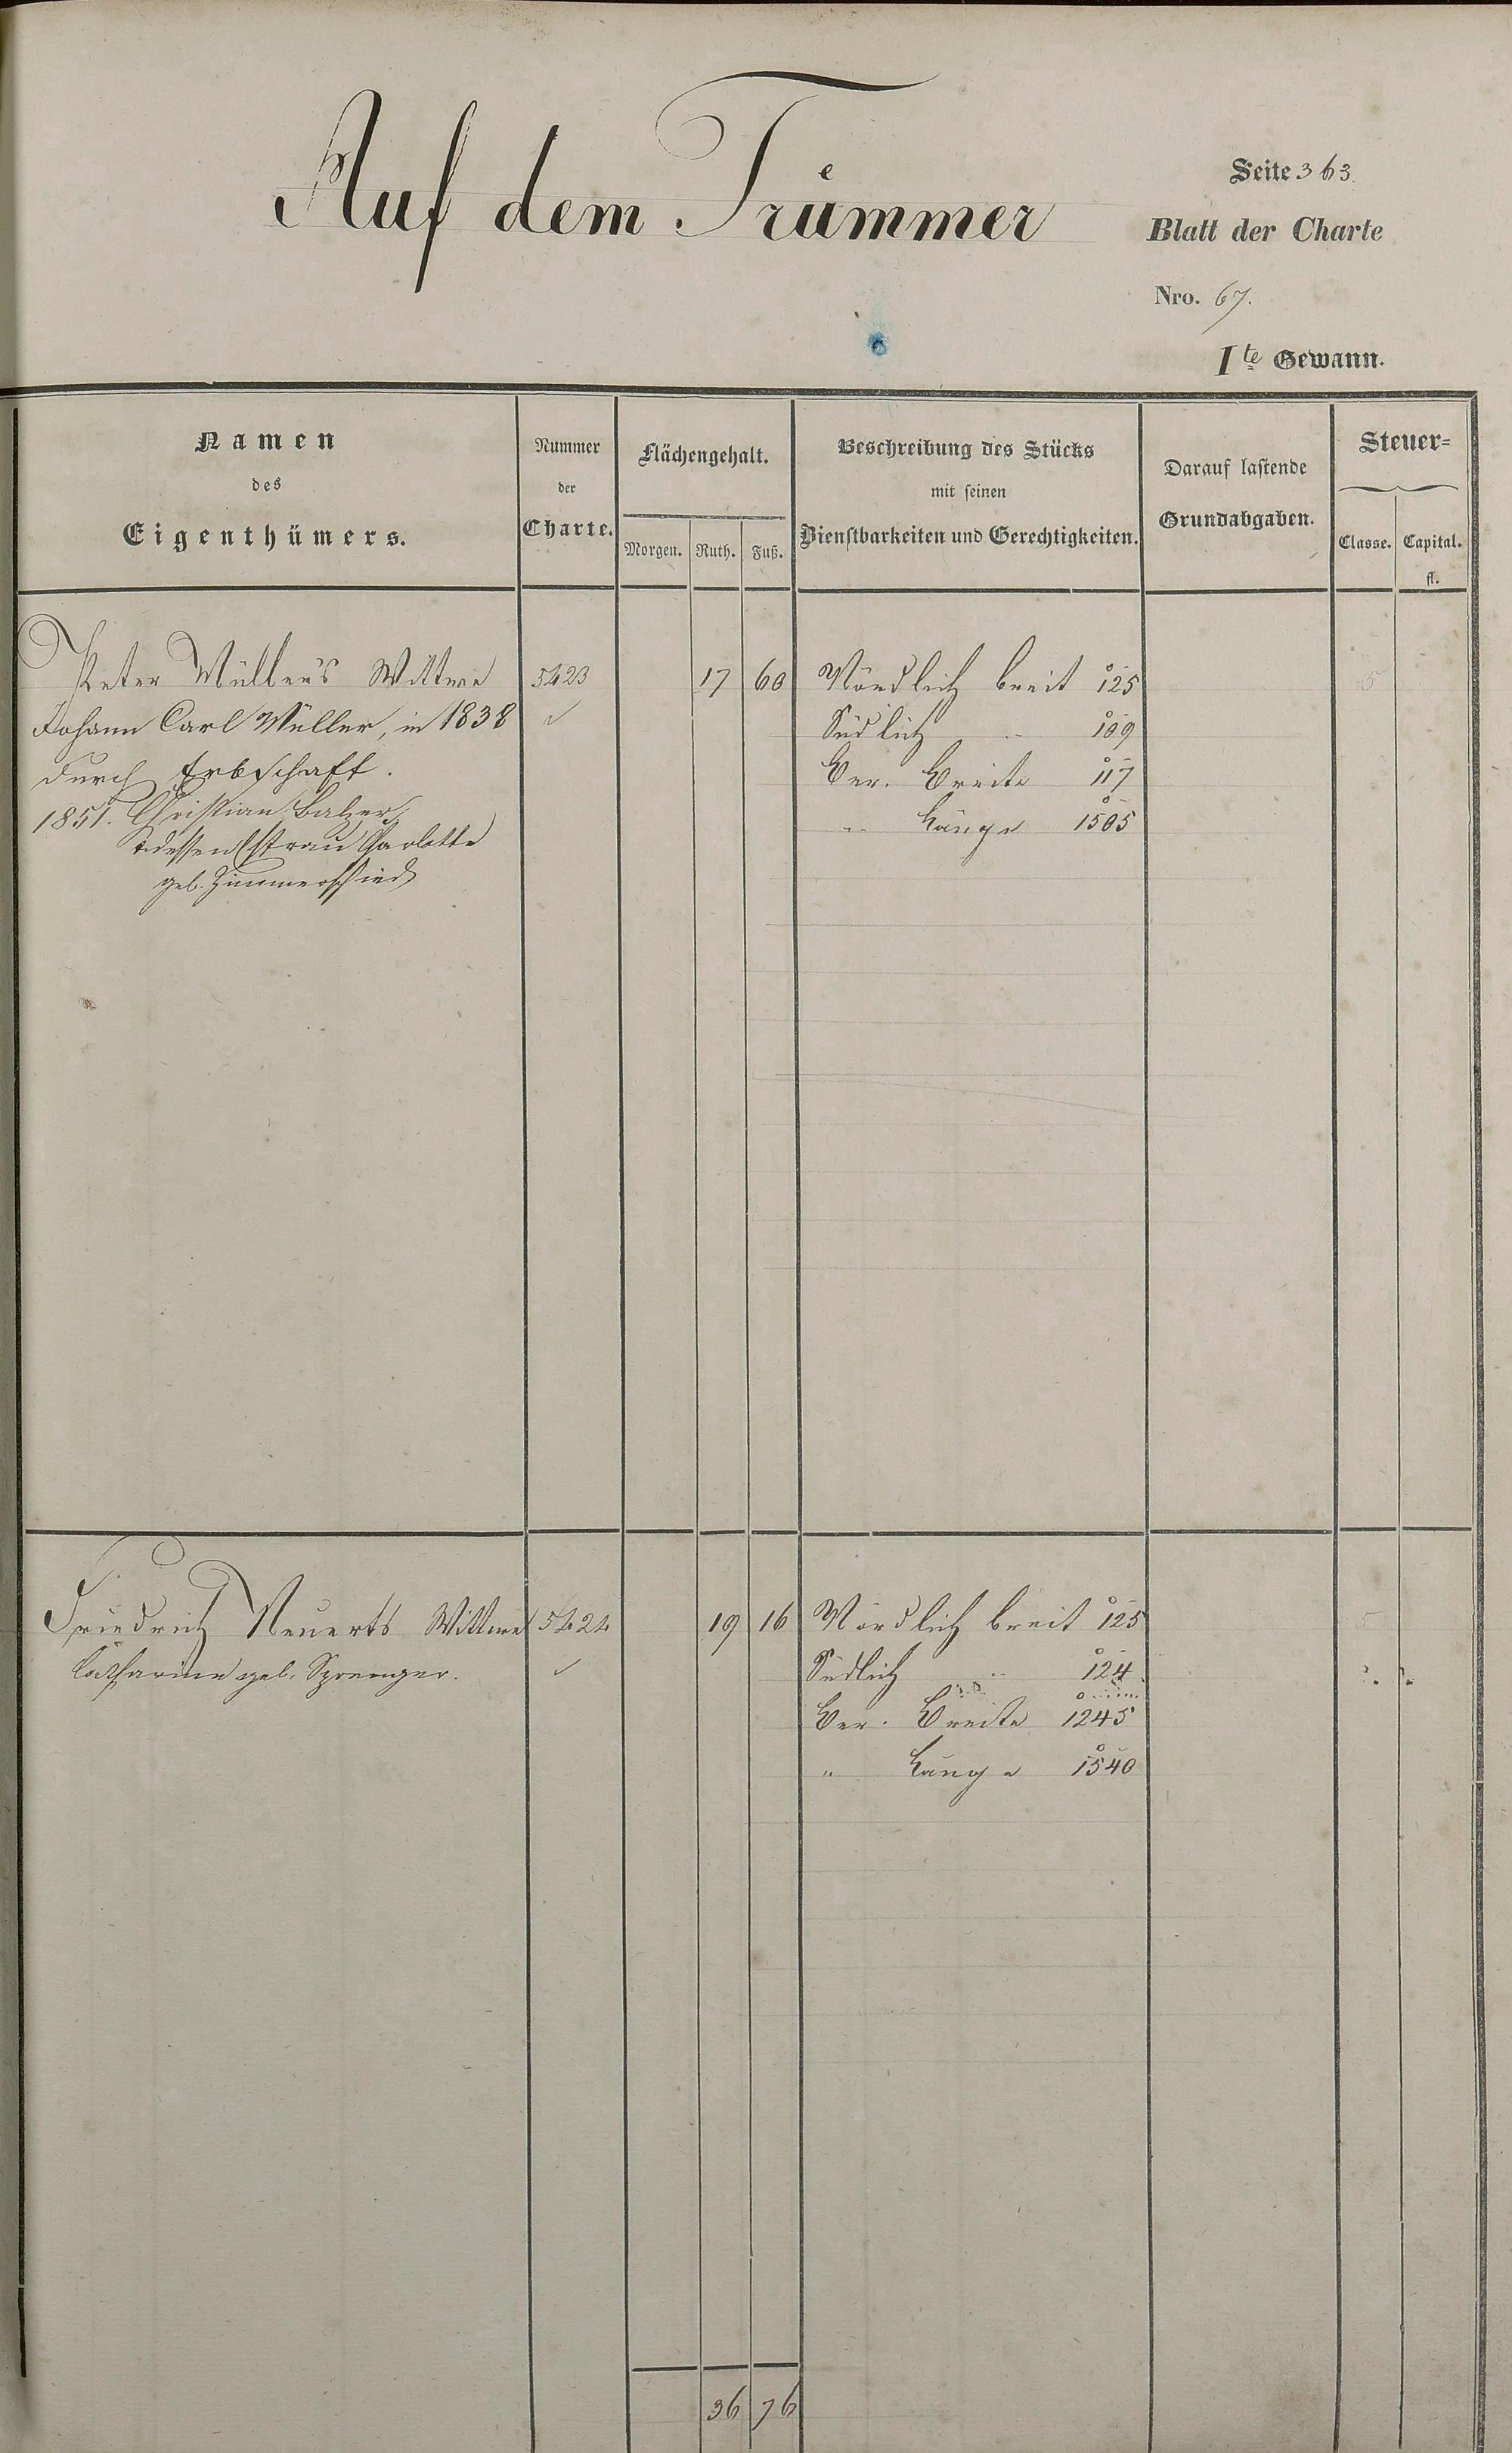 Auf dem Trümmer
Seite 363.
Blatt der Charte
Nro. 67.
Ite Gewann.
Namen
des
Eigenthümers.
Nummer
der
Charte.
Flächengehalt.
Morgen. Ruth. Fuß.
Beschreibung des Stücks
mit seinen
Dienstbarkeiten und Gerechtigkeiten.
Darauf lastende
Grundabgaben.
Steuer=
Classe. Capital.
fl.
Peter Müller's Wittwe 5423 17 60 Nördlich breit 125 5
Johann Carl Müller, in 1838 Südlich " 109
durch Erbschaft. Ver. Breite 117
1851. Christian Balzer, " Länge 1505
& dessen Ehefrau Charlotte
geb. Zimmerschied
Friedrich Neuerts Wittwe 5424 19 16 Nördlich breit 125 5
Catharine geb. Sprenger. Südlich " 124
Ver. Breite 1245
" Länge 1540
36 76